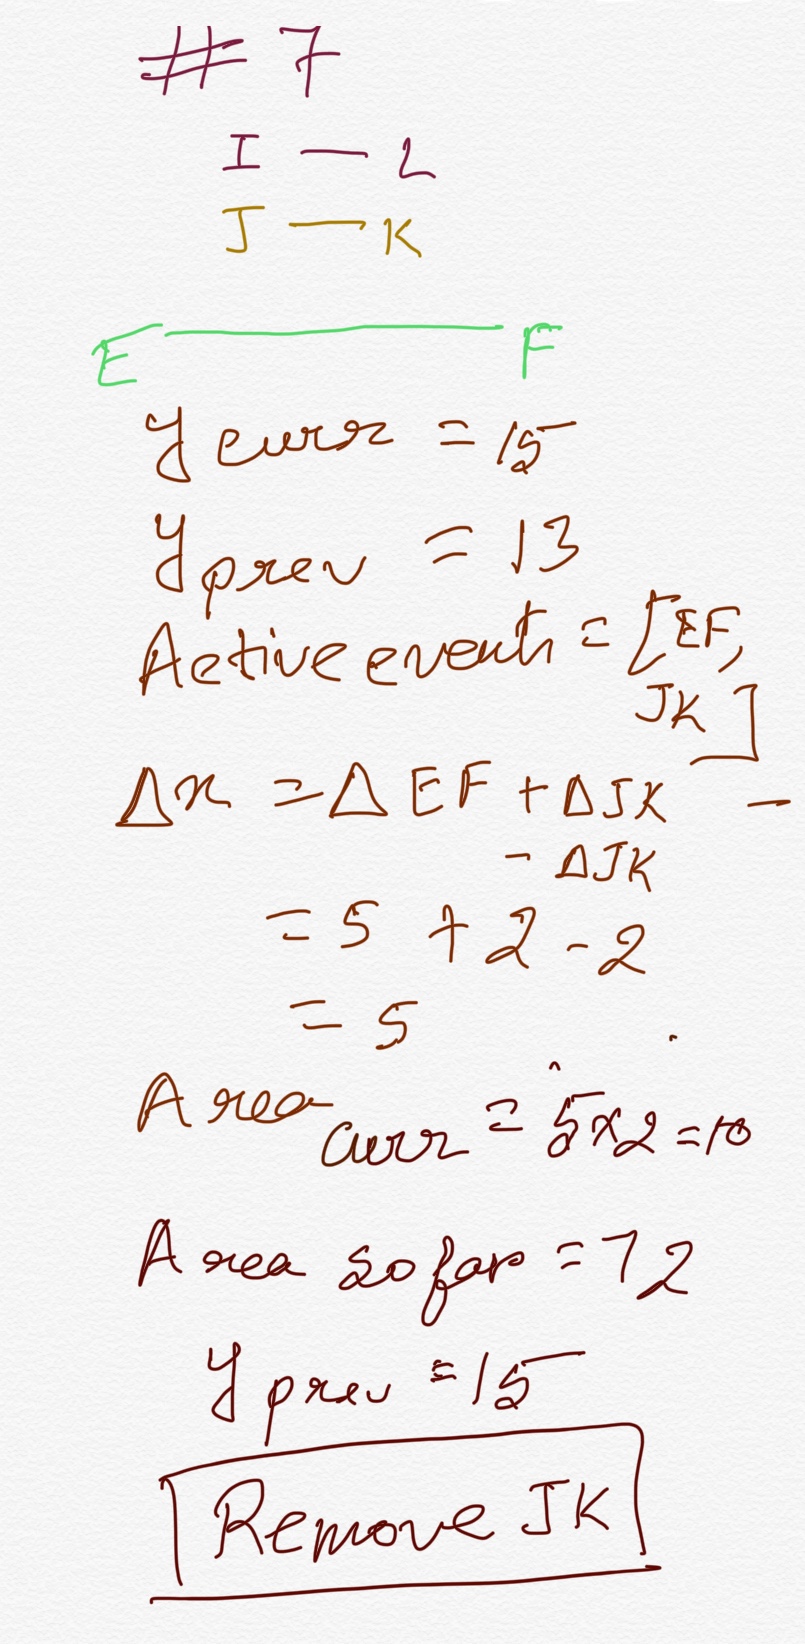 # 7
I — L
J — K
E — F
y curr = 15
y prev = 13
Active events = [EF,
JK]
Δx = Δ EF + ΔJK -
- ΔJK
= 5 + 2 - 2
= 5
Area curr = 5x2 = 10
Area so far = 72
y prev = 15
Remove JK